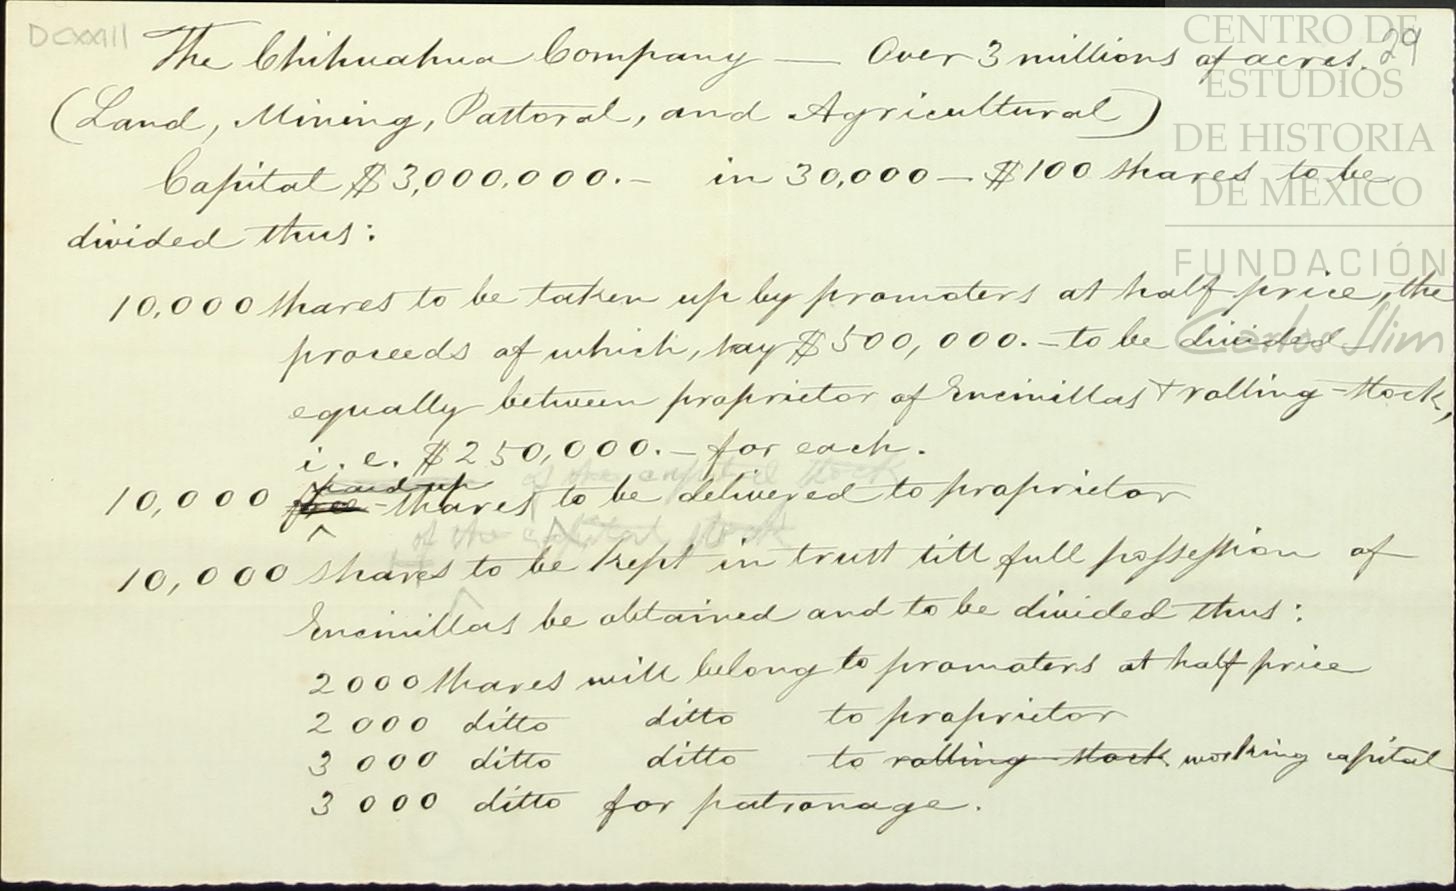 DCXXIII
29
The Chihuahua Company — Over 3 millions of acres.
(Land, Mining, Pastoral, and Agricultural)
Capital $3,000,000.— in 30,000 — $100 shares to be
divided thus:
10,000 shares to be taken up by promoters at half price, the
proceeds of which, say $500,000.— to be divided
equally between proprietor of Encinillas & rolling-stock,
i.e. $250,000.— for each.
of the capital stock
paid up
10,000 free-shares to be delivered to proprietor
of the capital stock
10,000 shares to be kept in trust till full possession of
Encinillas be obtained and to be divided thus:
2000 shares will belong to promoters at half price
2000 ditto ditto to proprietor
3000 ditto ditto to rolling stock working capital
3000 ditto for patronage.
CENTRO DE
ESTUDIOS
DE HISTORIA
DE MÉXICO
FUNDACIÓN
Carlos Slim